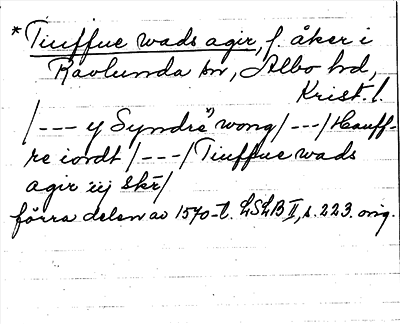 *Tiuffue wads agir, f. åker i
Ravlunda sn, Albo hd,
Krist. l.
/--- y Syndre *) wong/---/Hauff-
re iordt/---/Tiuffue wads
agir iij skr/
förra delen av 1570-t. LSLB II, s. 223. orig.